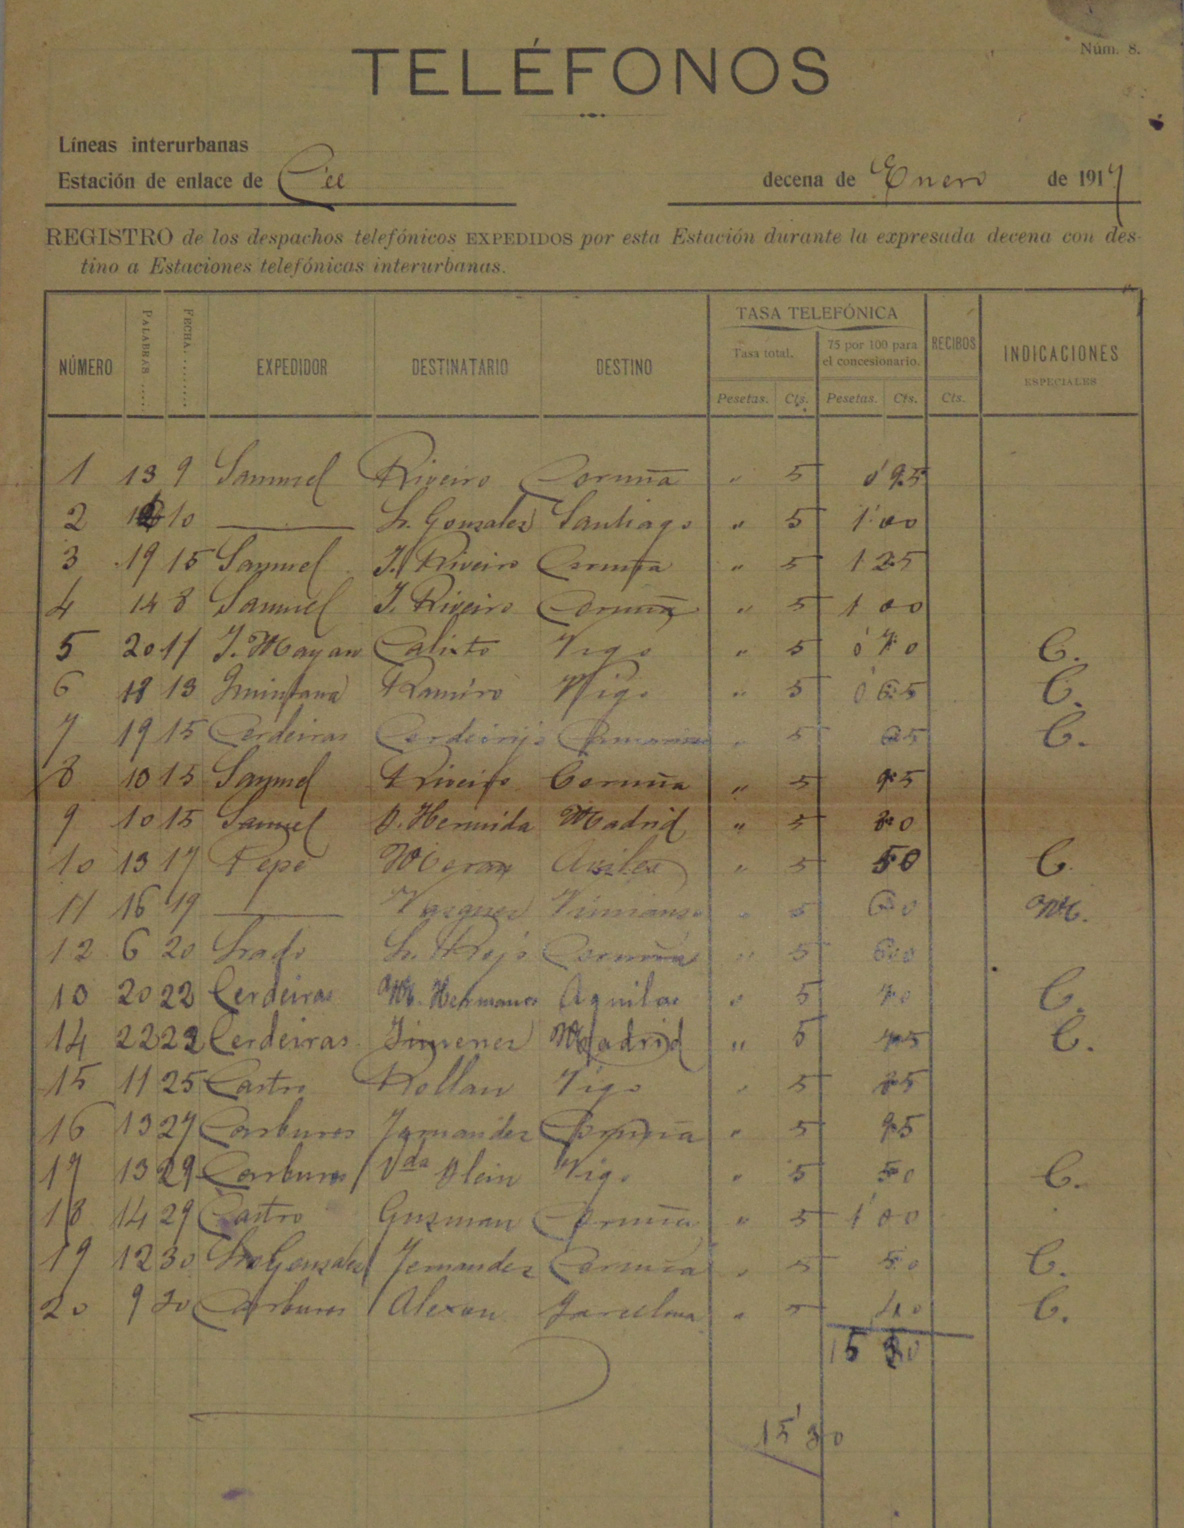 Núm. 8.
TELÉFONOS
Líneas interurbanas
Estación de enlace de Cee decena de Enero de 1917
REGISTRO de los despachos telefónicos EXPEDIDOS por esta Estación durante la expresada decena con des-
tino a Estaciones telefónicas interurbanas.
NÚMERO PALABRAS FECHA EXPEDIDOR DESTINATARIO DESTINO TASA TELEFÓNICA RECIBOS INDICACIONES ESPECIALES
Tasa total. 75 por 100 para el concesionario.
Pesetas. Cts. Pesetas. Cts. Cts.
1 13 9 Samuel Riveiro Coruña " 5 0'95
2 10 Sr. Gonzalez Santiago " 5 1'00
3 19 15 Samuel J. Riveiro Coruña " 5 1 25
4 14 8 Samuel J. Riveiro Coruña " 5 1 00
5 20 11 J. Mayan Calixto Vigo " 5 0'70 C.
6 18 13 Quintana Ramiro Vigo " 5 0'65 C.
7 19 15 Cerdeiras " 5 65 C.
8 10 15 Samuel Riveiro Coruña " 5 95
9 10 15 Samuel D. Hermida Madrid " 5 80
10 13 17 Pepe Moran Aviles " 5 50 C.
11 16 19 Vazquez Vimianzo " 5 60 M.
12 6 20 Sr. Rojo Coruña " 5 60
13 20 22 Cerdeiras M. Hermanos Aguilas " 5 70 C.
14 22 22 Cerdeiras Jimenez Madrid " 5 75 C.
15 11 25 Castro Rollan Vigo " 5 85
16 13 27 Carburos Fernandez Coruña " 5 95
17 13 29 Carburos Vda Vigo " 5 50 C.
18 14 29 Castro Guzman Coruña " 5 1'00
19 12 30 Sr Gonzalez Fernandez Coruña " 5 50 C.
20 9 30 Carburos " 5 40 C.
15 30
15'30